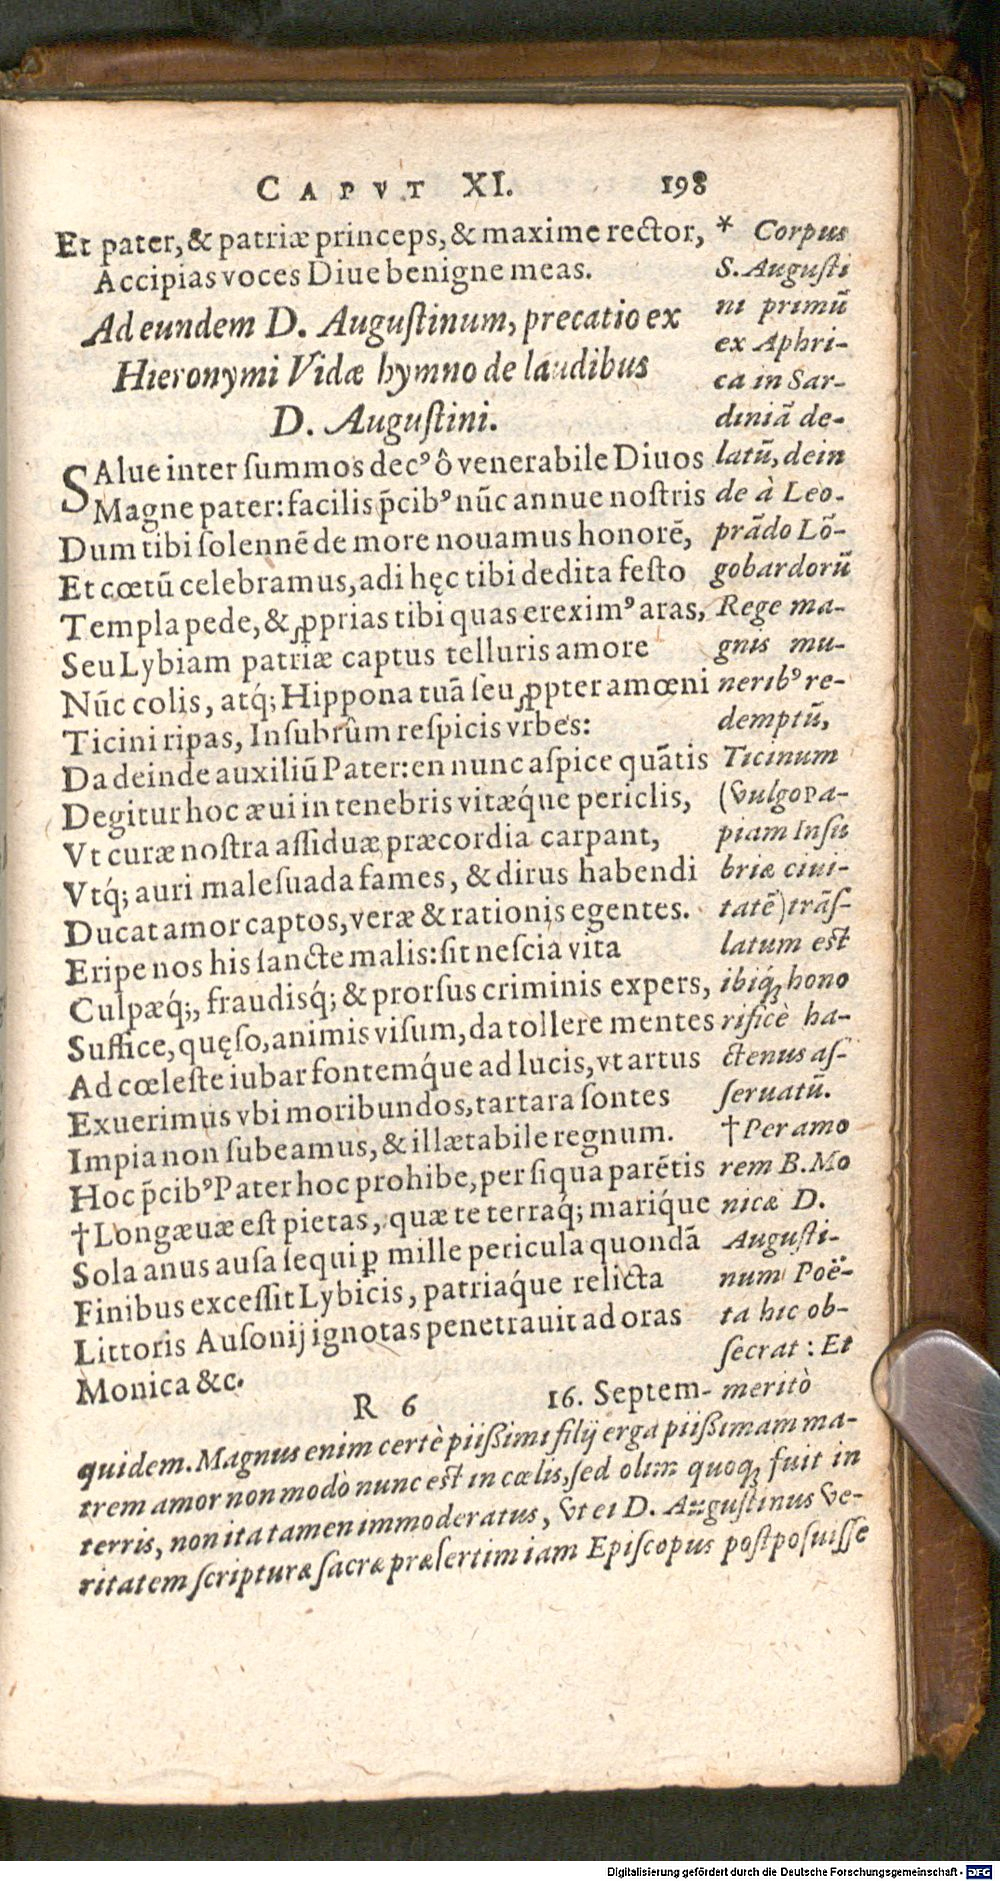 CAPVT XI. 198
Et pater, & patriæ princeps, & maxime rector,
Accipias voces Diue benigne meas.
Ad eundem D. Auguſtinum, precatio ex
Hieronymi Vidæ hymno de laudibus
D. Auguſtini.
SAlue inter ſummos decꝰ ô venerabile Diuos
Magne pater: facilis p̄cibꝰ nūc annue noſtris
Dum tibi ſolennē de more nouamus honorē,
Et cœtū celebramus, adi hęc tibi dedita feſto
Templa pede, & ꝓprias tibi quas ereximꝰ aras,
Seu Lybiam patriæ captus telluris amore
Nūc colis, atq́; Hippona tuā ſeu ꝓpter amœni
Ticini ripas, Inſubrûm reſpicis vrbes:
Da deinde auxiliū Pater: en nunc aſpice quātis
Degitur hoc æui in tenebris vitæq́ue periclis,
Vt curæ noſtra aſſiduæ præcordia carpant,
Vtq́; auri maleſuada fames, & dirus habendi
Ducat amor captos, veræ & rationis egentes.
Eripe nos his ſancte malis: ſit neſcia vita
Culpæq́;, fraudisq́; & prorſus criminis expers,
Suffice, quęſo, animis viſum, da tollere mentes
Ad cœleſte iubar fontemq́ue ad lucis, vt artus
Exuerimus vbi moribundos, tartara ſontes
Impia non ſubeamus, & illætabile regnum.
Hoc p̄cibꝰ Pater hoc prohibe, per ſiqua parētis
†Longæuæ eſt pietas, quæ te terraq́; mariq́ue
Sola anus auſa ſequi ꝑ mille pericula quondā
Finibus exceſſit Lybicis, patriaq́ue relicta
Littoris Auſonij ignotas penetrauit ad oras
Monica &c.
R 6 16. Septem-
* Corpus
S. Auguſti
ni primū
ex Aphri-
ca in Sar-
diniā de-
latū, dein
de à Leo-
prādo Lō-
gobardorū
Rege ma-
gnis mu-
neribꝰ re-
demptū,
Ticinum
(vulgo Pa-
piam Inſu
briæ ciui-
tatē) trāſ-
latum eſt
ibiq́ꝫ hono
rificè ha-
ctenus aſ-
ſeruatū.
†Per amo
rem B. Mo
nicæ D.
Auguſti-
num Poë-
ta hic ob-
ſecrat: Et
meritò
quidem. Magnus enim certè piiſſimi filij erga piiſſimam ma-
trem amor non modò nunc eſt in cœlis, ſed olim quoqꝫ fuit in
terris, non ita tamen immoderatus, vt ei D. Auguſtinus ve-
ritatem ſcripturæ ſacræ præſertim iam Epiſcopus poſtpoſuiſſe
Digitalisierung gefördert durch die Deutsche Forschungsgemeinschaft - DFG